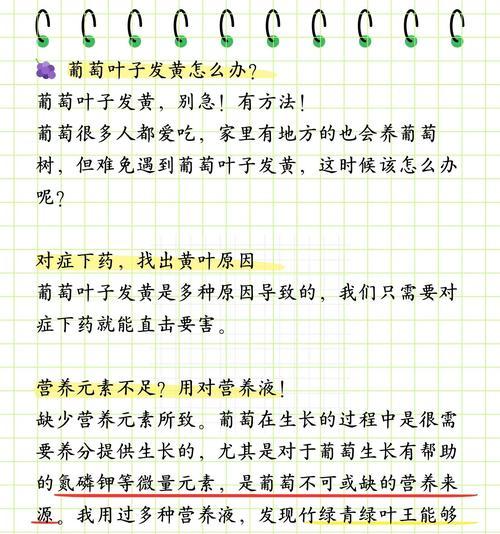 葡萄叶子发黄怎么办？
葡萄叶子发黄，别急！有方法！
葡萄很多人都爱吃，家里有地方的也会养葡萄
树，但难免遇到葡萄叶子发黄，这时候该怎么办
呢？
对症下药，找出黄叶原因
葡萄叶子发黄是多种原因导致的，我们只需要对
症下药就能直击要害。
营养元素不足？用对营养液！
缺少营养元素所致。葡萄在生长的过程中是很需
要养分提供生长的，尤其是对于葡萄生长有帮助
的氮磷钾等微量元素，是葡萄不可或缺的营养来
源。我用过多种营养液，发现竹绿青绿叶王能够